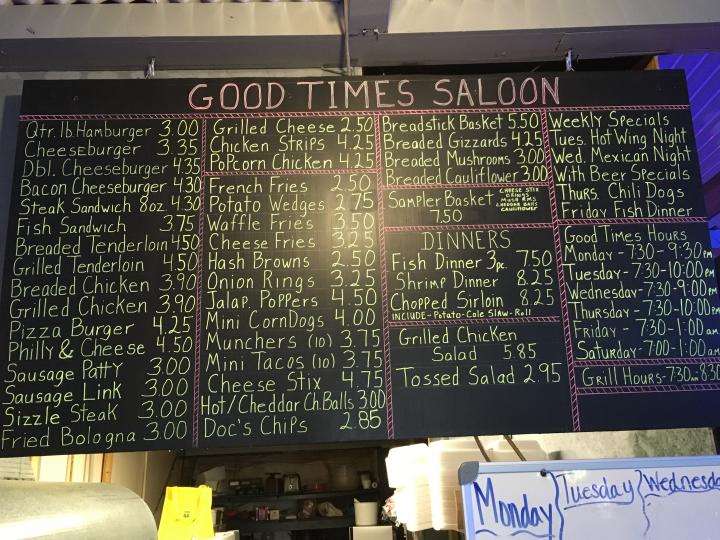 GOOD TIMES SALOON
Qtr. lb Hamburger 3.00
Cheeseburger 3.35
Dbl. Cheeseburger 4.35
Bacon Cheeseburger 4.30
Steak Sandwich 8oz 4.30
Fish Sandwich 3.75
Breaded Tenderloin 4.50
Grilled Tenderloin 4.50
Breaded Chicken 3.90
Grilled Chicken 3.90
Pizza Burger 4.25
Philly & Cheese 4.50
Sausage Patty 3.00
Sausage Link 3.00
Sizzle Steak 3.00
Fried Bologna 3.00
Grilled Cheese 2.50
Chicken Strips 4.25
PoPcorn Chicken 4.25
French Fries 2.50
Potato Wedges 2.75
Waffle Fries 3.50
Cheese Fries 3.25
Hash Browns 2.50
Onion Rings 3.25
Jalap. Poppers 4.50
Mini CornDogs 4.00
Munchers (10) 3.75
Mini Tacos (10) 3.75
Cheese Stix 4.75
Hot/Cheddar Ch. Balls 3.00
Doc's Chips 2.85
Breadstick Basket 5.50
Breaded Gizzards 4.25
Breaded Mushrooms 3.00
Breaded Cauliflower 3.00
Sampler Basket
7.50
CHEESE STIX
CAULIFLOWER
DINNERS
Fish Dinner 3pc. 7.50
Shrimp Dinner 8.25
Chopped Sirloin 8.25
INCLUDE-Potato-Cole Slaw-Roll
Grilled Chicken
Salad 5.85
Tossed Salad 2.95
Weekly Specials
Tues. Hot Wing Night
Wed. Mexican Night
With Beer Specials
Thurs. Chili Dogs
Friday Fish Dinner
Good Times Hours
Monday - 7:30 - 9:30pm
Tuesday - 7:30-10:00pm
Wednesday - 7:30-9:00pm
Thursday - 7:30-10:00pm
Friday - 7:30-1:00am
Saturday - 7:00-1:00am
Grill Hours - 7:30am - 8:30
Monday
Tuesday
Wednesda